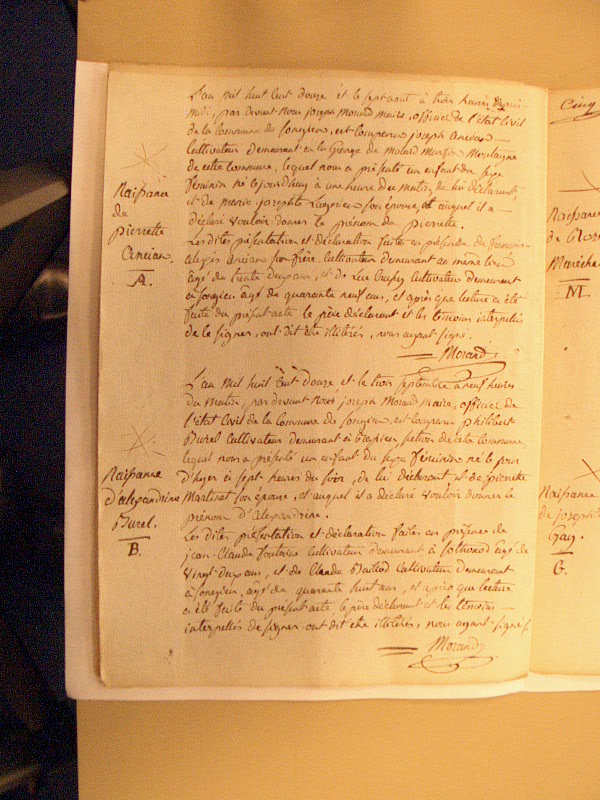 L'an mil huit cent douze et le sept aout à trois heures après
midi, par devant nous joseph Morand maire, officier de l'état civil
de la Commune de Songieu, est comparu joseph Ancian
Cultivateur demeurant en la Grange du Molard
de cette Commune, lequel nous a présenté un enfant du sexe
féminin né le jourd'huy à une heure du matin, de lui déclarant
et de Marie josephte son épouse, et auquel il a
déclaré vouloir donner le prénom de pierrette.
Les dites présentation et déclaration faites en présence de
Ancian son frère, Cultivateur demeurant au même lieu
âgé de trente deux ans, et de Luc Cultivateur demeurant
à Songieu âgé de quarante neuf ans, et après que lecture a été
faite du présent acte le père déclarant et les témoins interpellés
de le signer, ont dit être illitérés, nous ayant signé.
Morand
Naissance
de
pierrette
Ancian.
A.
L'an mil huit cent douze et le trois septembre à neuf heures
du matin, par devant nous joseph Morand Maire, officier de
l'état civil de la Commune de Songieu, est comparu philibert
Burel Cultivateur demeurant à section de cette Commune
lequel nous a présenté un enfant du sexe féminin né le jour
d'hyer à sept heures du soir, de lui déclarant et de pierrette
Martinat son épouse, et auquel il a déclaré vouloir donner le
prénom d'alexandrine.
Les dites présentation et déclaration faites en présence de
jean Claude Cultivateur demeurant à Sothonod âgé de
vingt deux ans, et de Claude Cultivateur demeurant
à Songieu, âgé de quarante huit ans, et après que lecture
a été faite du présent acte le père déclarant et les témoins
interpellés de signer ont dit être illitérés, nous ayant signé.
Morand
Naissance
d'alexandrine
Burel.
B.
Cinq
Naissance
M.
Naissance
de josephte
Gay.
G.